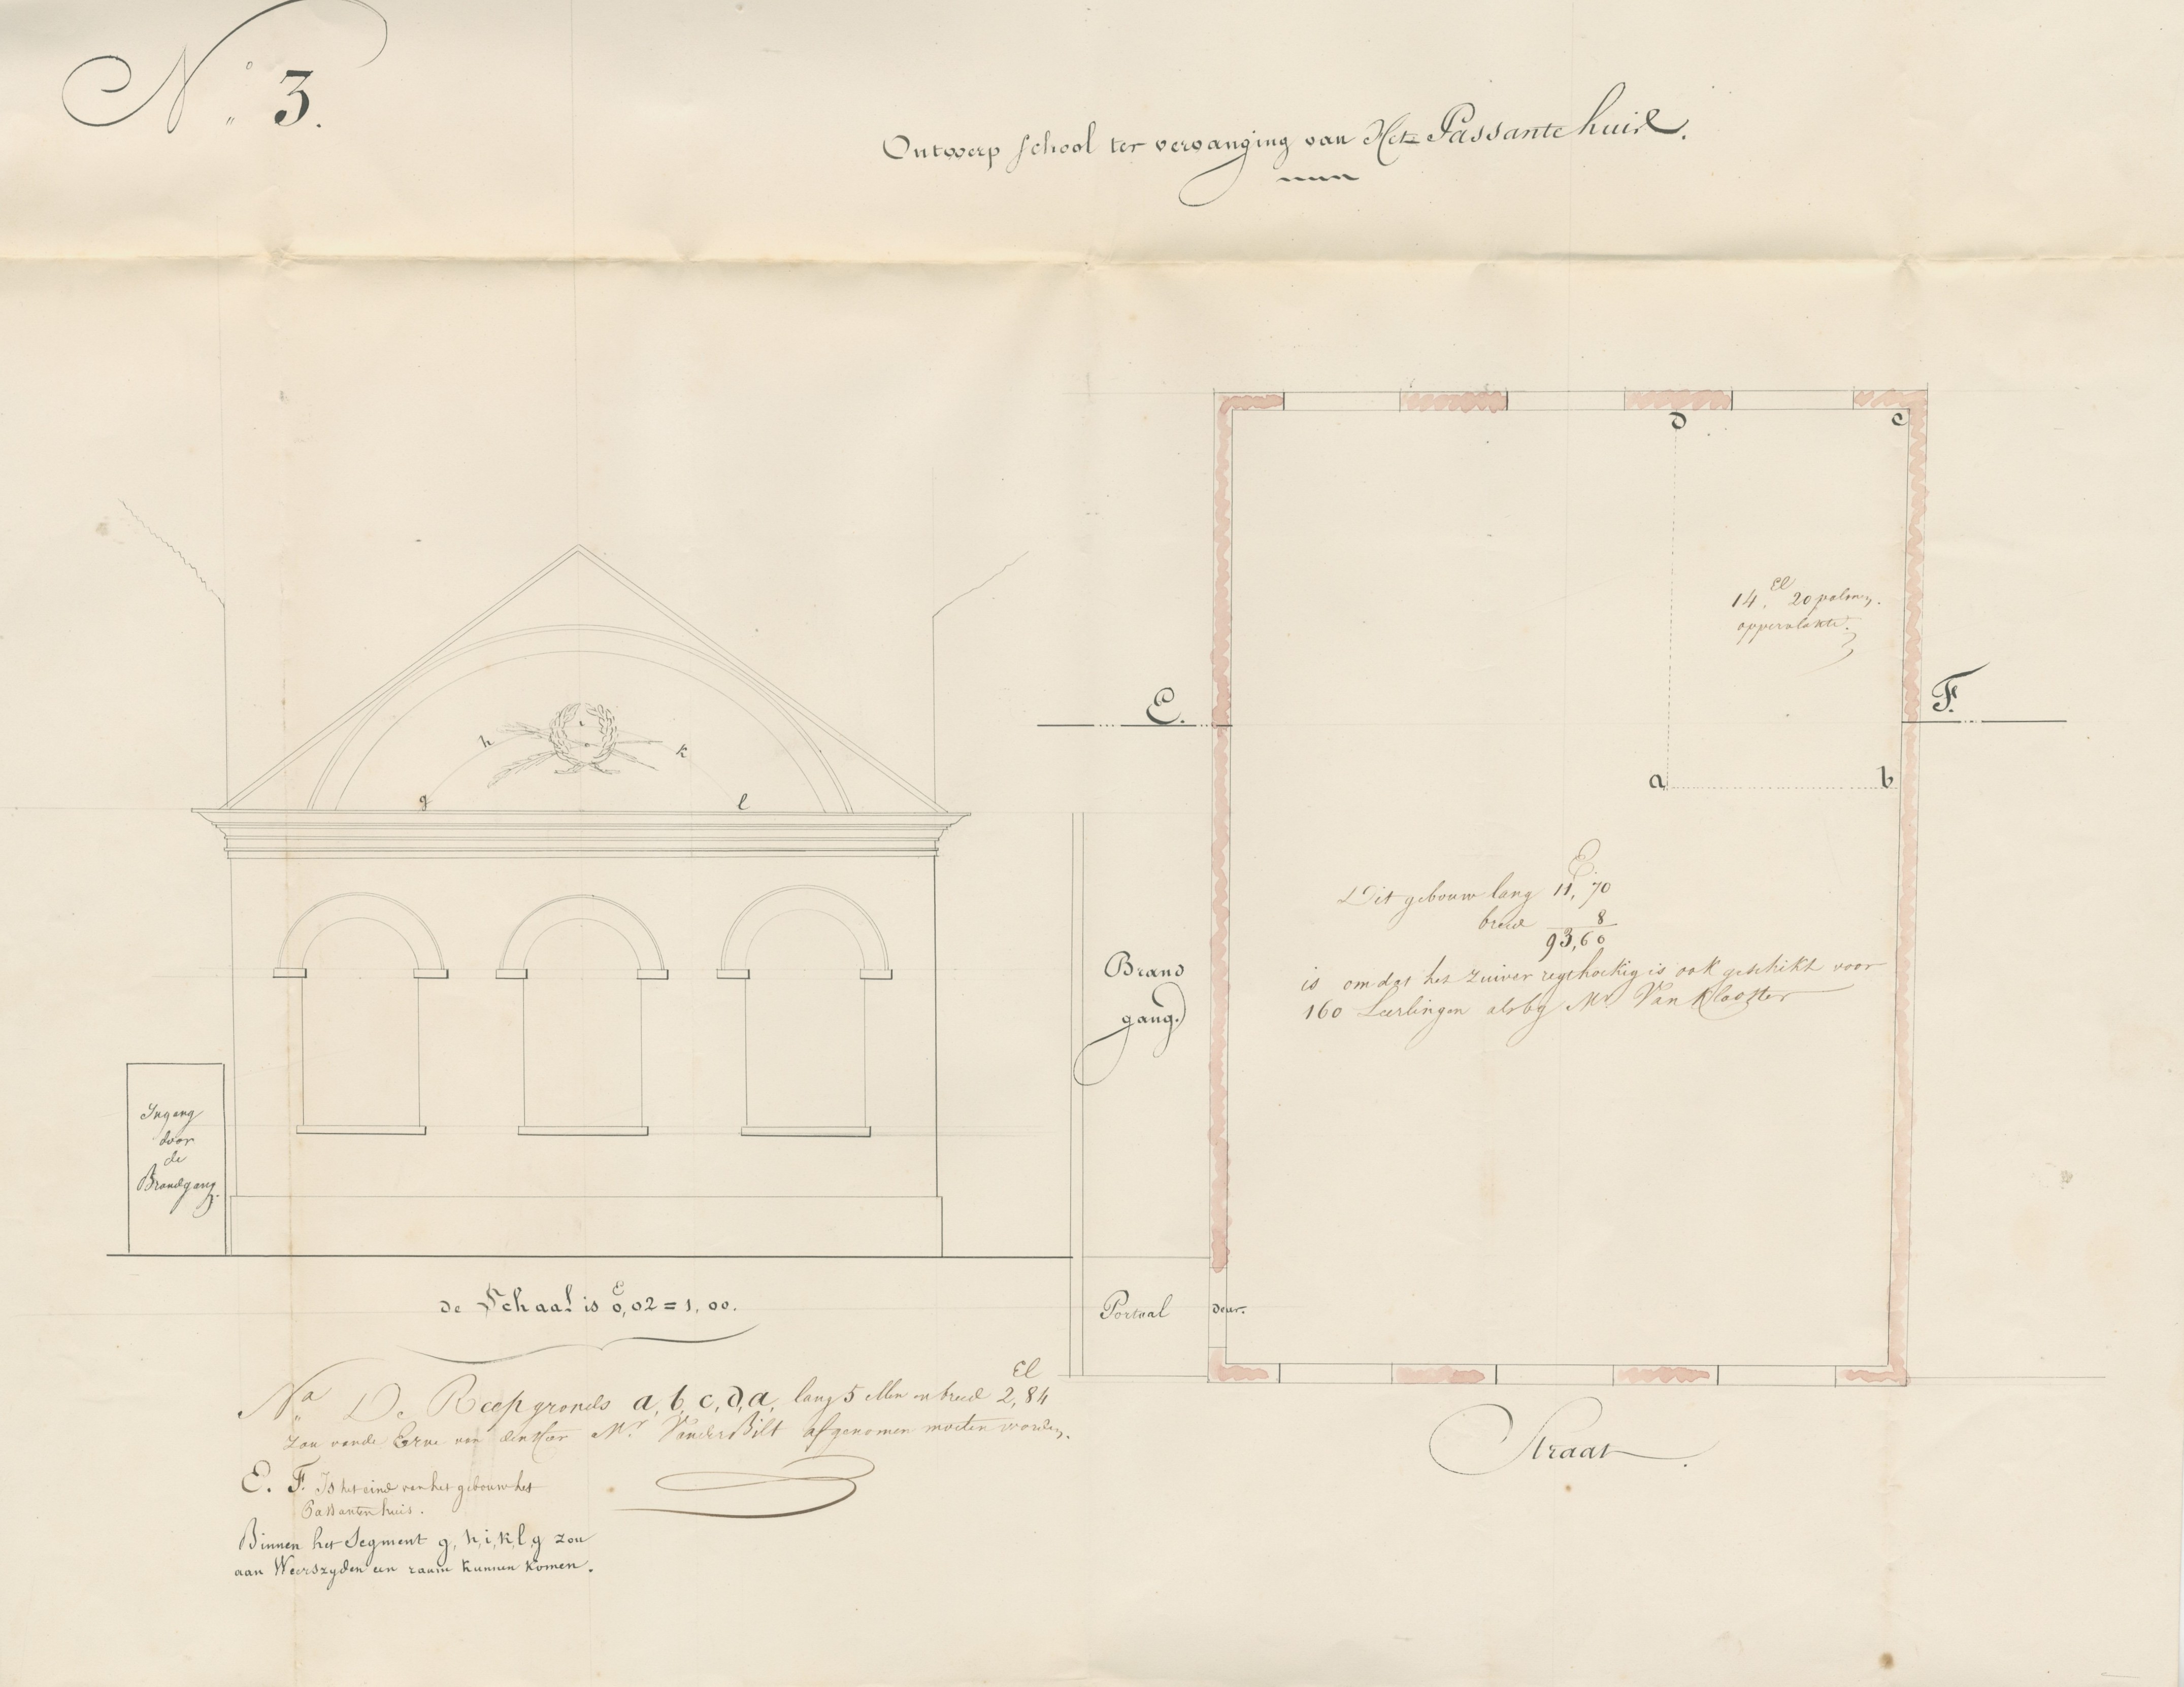 No. 3.
Ontwerp school ter vervanging van Het Passantehuis.
d
c
14 El 20 palmen.
oppervlakte.
E.
F.
i
h
k
g
l
a
b
Dit gebouw lang 11, 70
breed 8
93,60
is omdat het zuiver regthoekig is ook geschikt voor
160 Leerlingen als by Mr Van Klooster
Brand
gang.
Ingang
door
de
Brandgang.
de Schaal is 0,02 = 1,00.
Portaal
deur.
Na De Reep gronds a, b, c, d, a, lang 5 ellen en breed 2,84 El
zou van de Erve van den Heer Mr. Van der Bilt afgenomen moeten worden.
Straat.
E. F. Is het eind van het gebouw het
Passanten huis.
Binnen het Segment g, h, i, k, l, g zou
aan Weerszyden een raam kunnen komen.